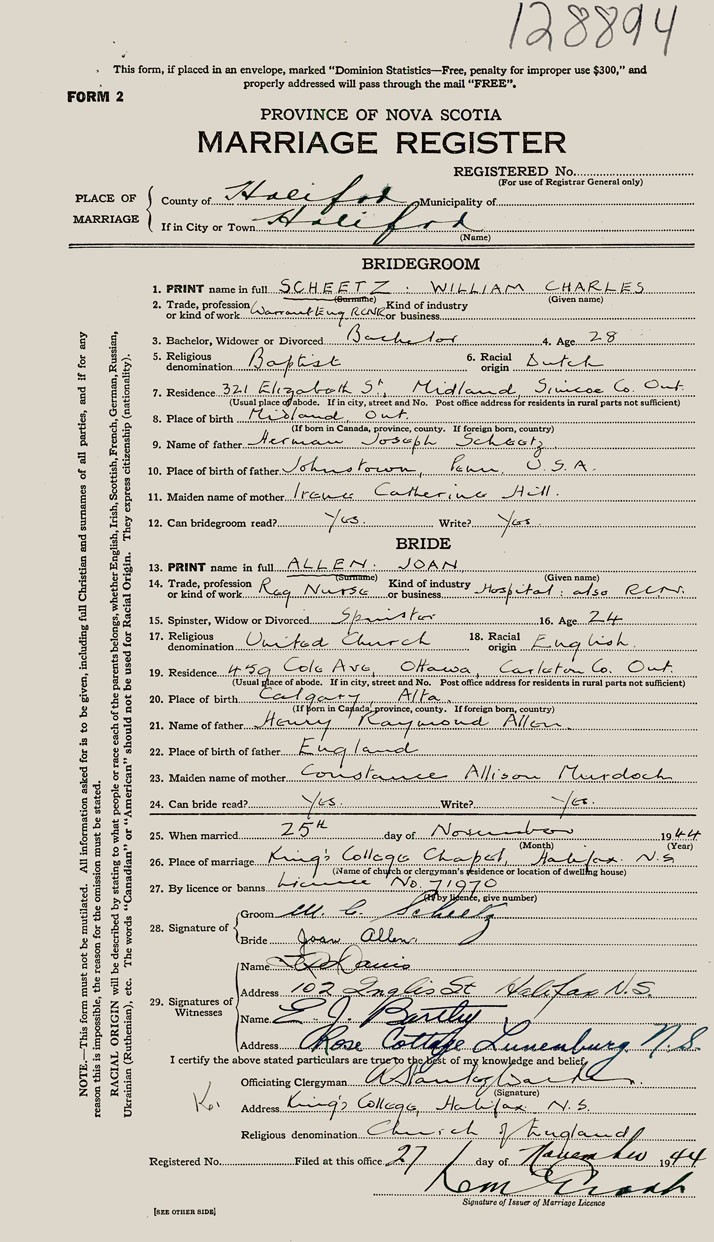 128894
This form, if placed in an envelope, marked "Dominion Statistics—Free, penalty for improper use $300," and
properly addressed will pass through the mail "FREE".
FORM 2
PROVINCE OF NOVA SCOTIA
MARRIAGE REGISTER
REGISTERED No.
(For use of Registrar General only)
PLACE OF MARRIAGE
County of Halifax Municipality of
If in City or Town Halifax
(Name)
BRIDEGROOM
1. PRINT name in full SCHEETZ : WILLIAM CHARLES
(Surname) (Given name)
2. Trade, profession or kind of work Warrant Eng RCNR Kind of industry or business
3. Bachelor, Widower or Divorced Bachelor 4. Age 28
5. Religious denomination Baptist 6. Racial origin Dutch
7. Residence 321 Elizabeth St, Midland, Simcoe Co. Ont.
(Usual place of abode. If in city, street and No. Post office address for residents in rural parts not sufficient)
8. Place of birth Midland Ont.
(If born in Canada, province, county. If foreign born, country)
9. Name of father Herman Joseph Scheetz
10. Place of birth of father Johnstown, Penn. U.S.A.
11. Maiden name of mother Irene Catherine Hill.
12. Can bridegroom read? Yes. Write? Yes.
BRIDE
13. PRINT name in full ALLEN. JOAN
(Surname) (Given name)
14. Trade, profession or kind of work Reg Nurse Kind of industry or business Hospital: also RCN.
15. Spinster, Widow or Divorced Spinster 16. Age 24
17. Religious denomination United Church 18. Racial origin English.
19. Residence 459 Cole Ave, Ottawa, Carleton Co. Ont.
(Usual place of abode. If in city, street and No. Post office address for residents in rural parts not sufficient)
20. Place of birth Calgary, Alta.
(If born in Canada, province, county. If foreign born, country)
21. Name of father Henry Raymond Allen.
22. Place of birth of father England
23. Maiden name of mother Constance Allison Murdoch
24. Can bride read? Yes. Write? Yes.
25. When married 25th day of November 1944
(Month) (Year)
26. Place of marriage King's College Chapel, Halifax. N.S
(Name of church or clergyman's residence or location of dwelling house)
27. By licence or banns Licence No. 71970
(If by licence, give number)
28. Signature of
Groom W. C. Scheetz
Bride Joan Allen.
29. Signatures of Witnesses
Name Davis
Address 102 Inglis St Halifax N.S.
Name E. J. Bartley
Address Rose Cottage Lunenburg N.S.
I certify the above stated particulars are true to the best of my knowledge and belief.
Officiating Clergyman A Stanley
(Signature)
Address King's College, Halifax N.S.
Religious denomination Church of England
Registered No. Filed at this office 27 day of November 1944
Signature of Issuer of Marriage Licence
[SEE OTHER SIDE]
NOTE.—This form must not be mutilated. All information asked for is to be given, including full Christian and surnames of all parties, and if for any
reason this is impossible, the reason for the omission must be stated.
RACIAL ORIGIN will be described by stating to what people or race each of the parents belongs, whether English, Irish, Scottish, French, German, Russian,
Ukrainian (Ruthenian), etc. The words "Canadian" or "American" should not be used for Racial Origin. They express citizenship (nationality).